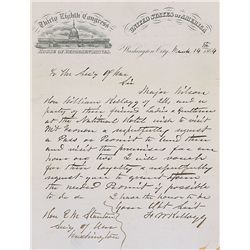 Thirty Eighth Congress
HOUSE OF REPRESENTATIVES
UNITED STATES OF AMERICA
Washington City, March 16th 1864
To the Secty of War
Sir
Major Wilson
Hon William Kellogg of Ills, and a
party of their friends Ladies & Gentlemen
at the National Hotel wish to visit
Mt Vernon & respectfully request
a Pass or Permit to land there
and visit the premises for one
hour or so. I will vouch
for their Loyalty & respectfully
request you to grant them
the needed Permit if possible
to do so. I have the honor to be
Your Obt Servt
Hon E. M. Stanton
Secy of War
Washington